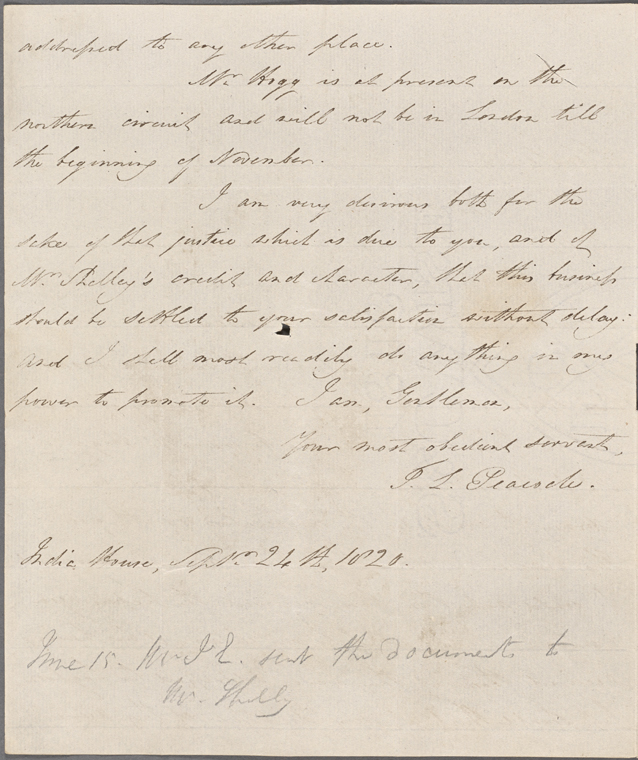 addressed to any other place.
Mr. Hogg is at present on the
northern circuit and will not be in London till
the beginning of November.
I am very desirous both for the
sake of that justice which is due to you, and of
Mr. Shelley's credit and character, that this business
should be settled to your satisfaction without delay:
and I shall most readily do anything in my
power to promote it. I am, Gentlemen,
Your most obedient servant,
T. L. Peacock.
India House, Septr. 24th, 1820.
June 15. Mr J E. sent the documents to
Mr. Shelly